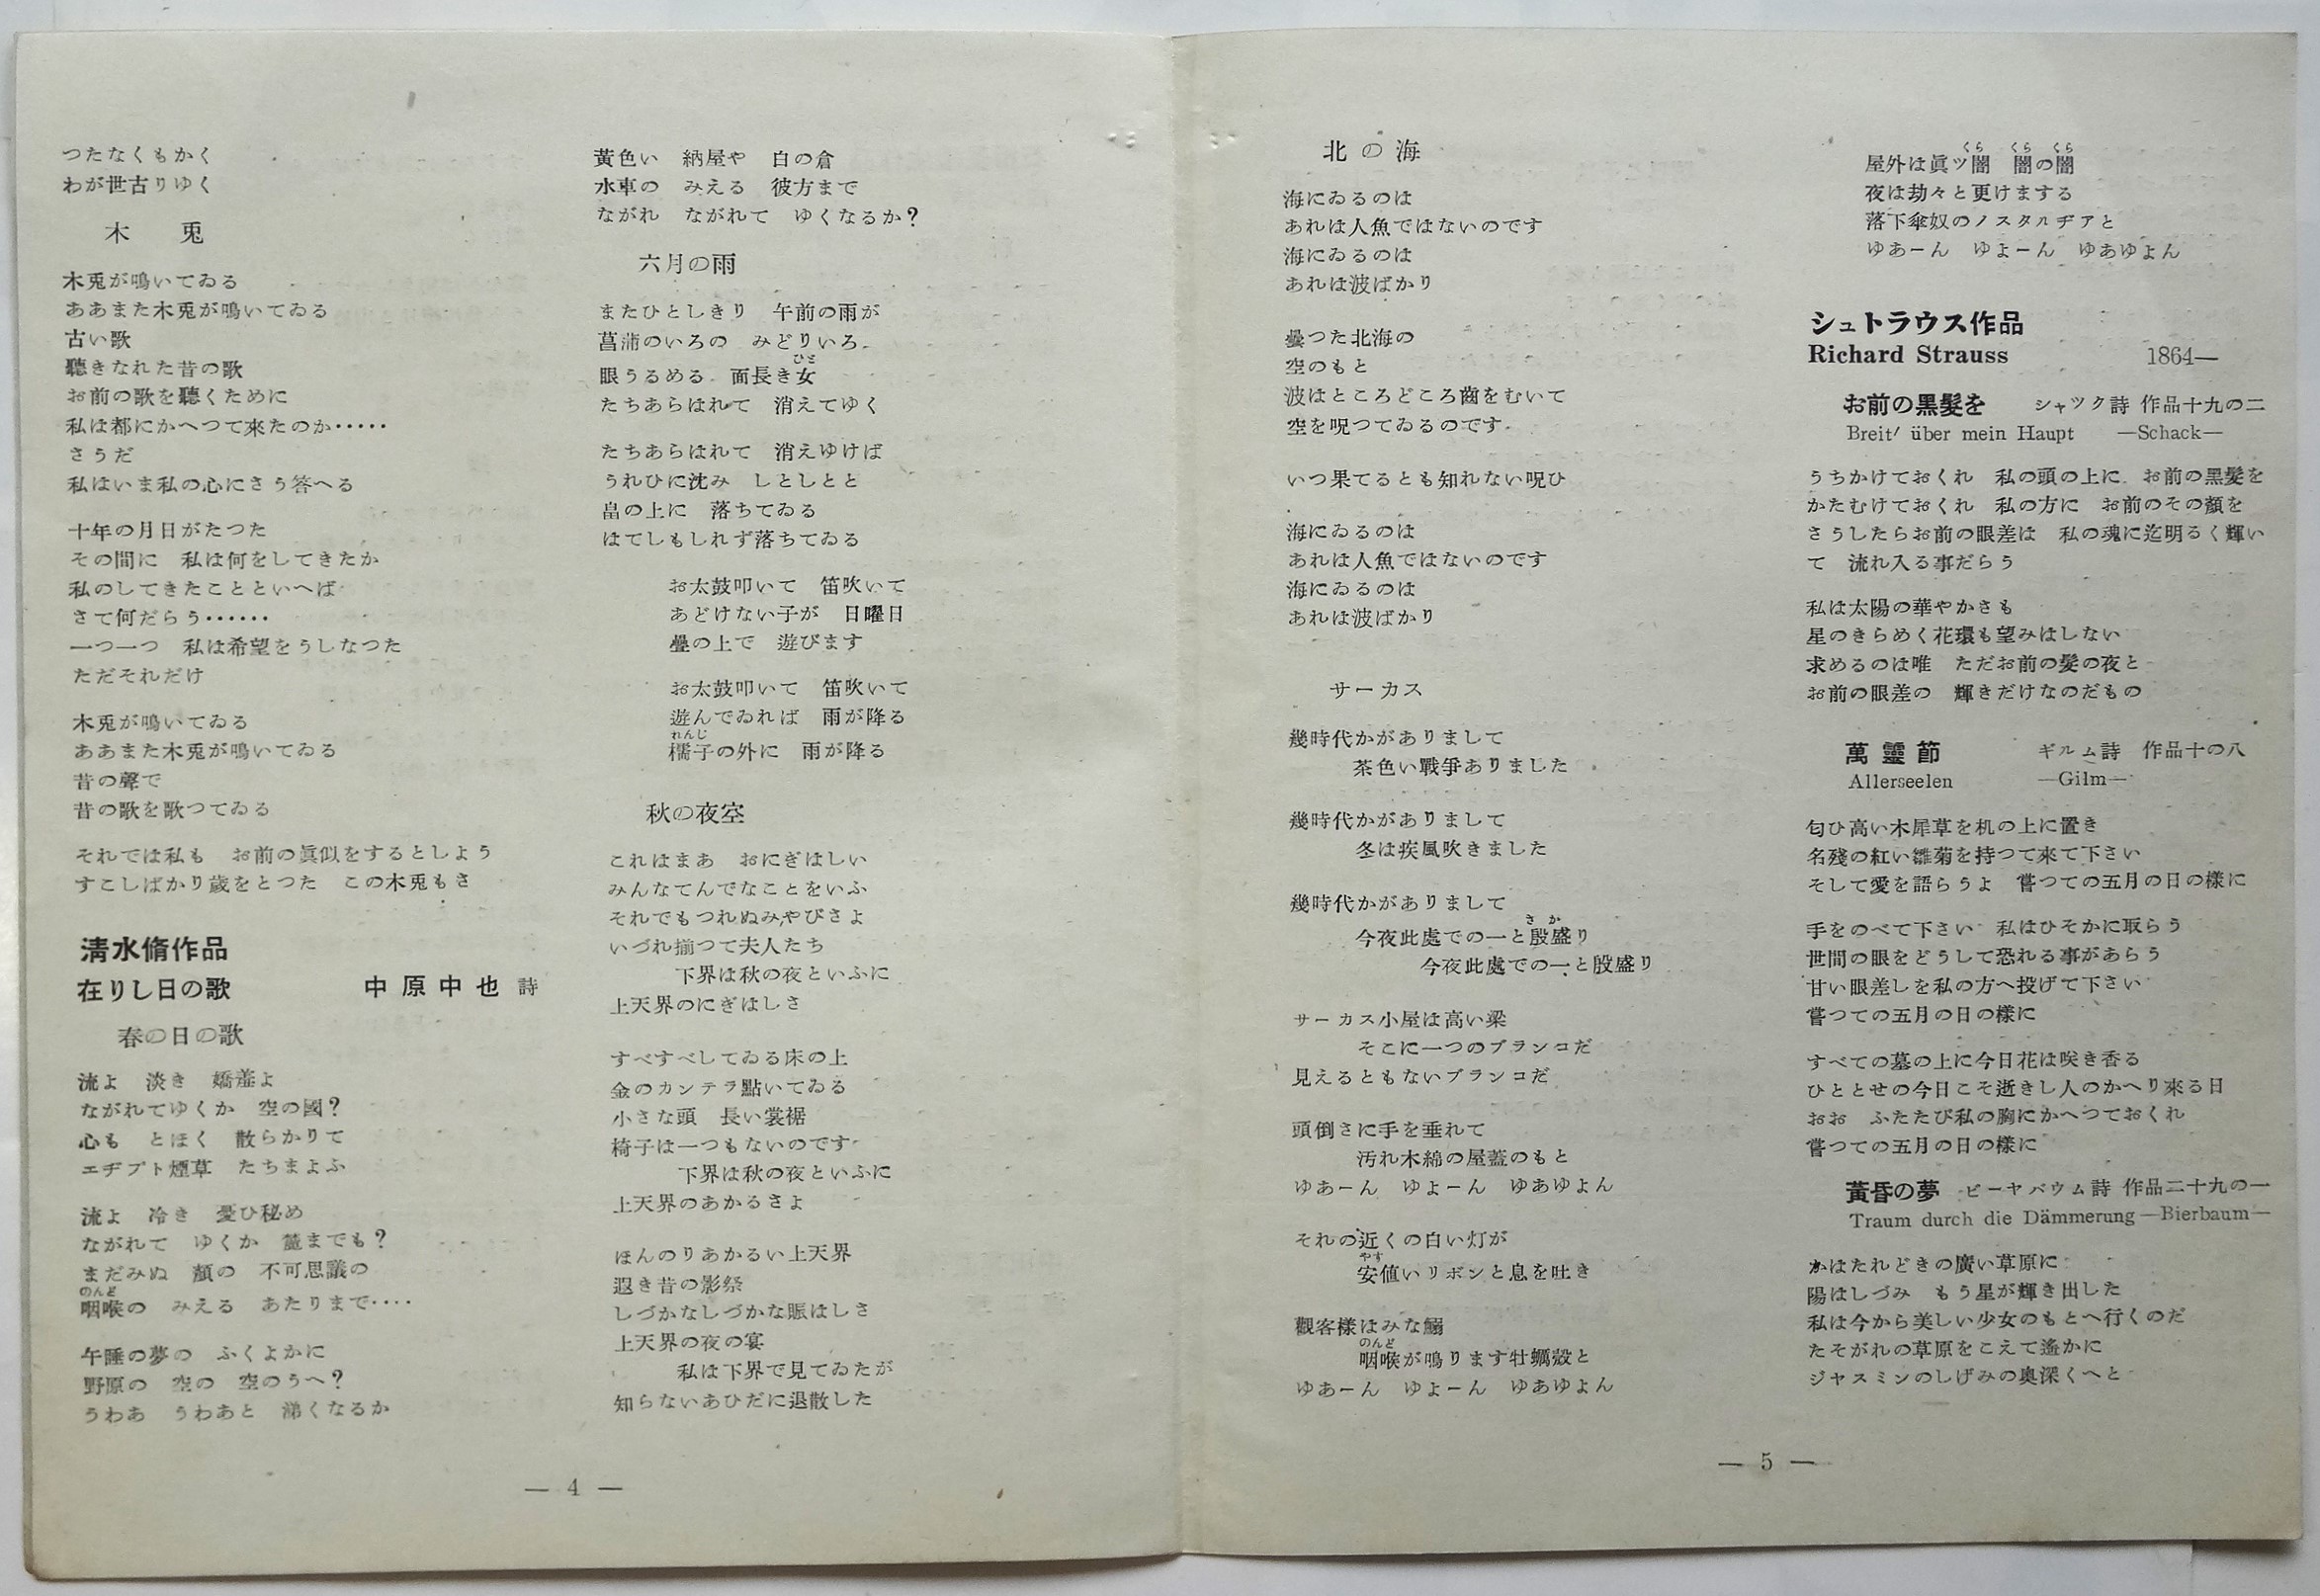 つたなくもかく
わが世古りゆく
木　兎
木兎が鳴いてゐる
ああまた木兎が鳴いてゐる
古い歌
聽きなれた昔の歌
お前の歌を聽くために
私は都にかへつて來たのか・・・・・
さうだ
私はいま私の心にさう答へる
十年の月日がたつた
その間に　私は何をしてきたか
私のしてきたことといへば
さて何だらう・・・・・・
一つ一つ　私は希望をうしなつた
ただそれだけ
木兎が鳴いてゐる
ああまた木兎が鳴いてゐる
昔の聲で
昔の歌を歌つてゐる
それでは私も　お前の眞似をするとしよう
すこしばかり歳をとつた　この木兎もさ
淸水脩作品
在りし日の歌　中原中也 詩
春の日の歌
流よ　淡き　嬌羞よ
ながれてゆくか　空の國？
心も　とほく　散らかりて
エヂプト煙草　たちまよふ
流よ　冷き　憂ひ秘め
ながれて　ゆくか　麓までも？
まだみぬ　顏の　不可思議の
のんど
咽喉の　みえる　あたりまで・・・・
午睡の夢の　ふくよかに
野原の　空の　空のうへ？
うわあ　うわあと　涕くなるか
黃色い　納屋や　白の倉
水車の　みえる　彼方まで
ながれ　ながれて　ゆくなるか？
六月の雨
またひとしきり　午前の雨が
菖蒲のいろの　みどりいろ
ひと
眼うるめる　面長き女
たちあらはれて　消えてゆく
たちあらはれて　消えゆけば
うれひに沈み　しとしとと
畠の上に　落ちてゐる
はてしもしれず落ちてゐる
お太鼓叩いて　笛吹いて
あどけない子が　日曜日
疊の上で　遊びます
お太鼓叩いて　笛吹いて
遊んでゐれば　雨が降る
れんじ
櫺子の外に　雨が降る
秋の夜空
これはまあ　おにぎはしい
みんなてんでなことをいふ
それでもつれぬみやびさよ
いづれ揃つて夫人たち
下界は秋の夜といふに
上天界のにぎはしさ
すべすべしてゐる床の上
金のカンテラ點いてゐる
小さな頭　長い裳裾
椅子は一つもないのです
下界は秋の夜といふに
上天界のあかるさよ
ほんのりあかるい上天界
遐き昔の影祭
しづかなしづかな賑はしさ
上天界の夜の宴
私は下界で見てゐたが
知らないあひだに退散した
— 4 —
北の海
海にゐるのは
あれは人魚ではないのです
海にゐるのは
あれは波ばかり
曇つた北海の
空のもと
波はところどころ齒をむいて
空を呪つてゐるのです
いつ果てるとも知れない呪ひ
海にゐるのは
あれは人魚ではないのです
海にゐるのは
あれは波ばかり
サーカス
幾時代かがありまして
茶色い戰爭ありました
幾時代かがありまして
冬は疾風吹きました
幾時代かがありまして
さか
今夜此處での一と殷盛り
今夜此處での一と殷盛り
サーカス小屋は高い梁
そこに一つのブランコだ
見えるともないブランコだ
頭倒さに手を垂れて
汚れ木綿の屋蓋のもと
ゆあーん　ゆよーん　ゆあゆよん
それの近くの白い灯が
やす
安値いリボンと息を吐き
觀客樣はみな鰯
のんど
咽喉が鳴ります牡蠣殼と
ゆあーん　ゆよーん　ゆあゆよん
くら　くら　くら
屋外は眞ッ闇　闇の闇
夜は劫々と更けまする
落下傘奴のノスタルヂアと
ゆあーん　ゆよーん　ゆあゆよん
シュトラウス作品
Richard Strauss　1864—
お前の黑髮を　シャツク詩 作品十九の二
Breit' über mein Haupt　—Schack—
うちかけておくれ　私の頭の上に　お前の黑髮を
かたむけておくれ　私の方に　お前のその顏を
さうしたらお前の眼差は　私の魂に迄明るく輝い
て　流れ入る事だらう
私は太陽の華やかさも
星のきらめく花環も望みはしない
求めるのは唯　ただお前の髮の夜と
お前の眼差の　輝きだけなのだもの
萬靈節　ギルム詩　作品十の八
Allerseelen　—Gilm—
匂ひ高い木犀草を机の上に置き
名殘の紅い雛菊を持つて來て下さい
そして愛を語らうよ　嘗つての五月の日の樣に
手をのべて下さい　私はひそかに取らう
世間の眼をどうして恐れる事があらう
甘い眼差しを私の方へ投げて下さい
嘗つての五月の日の樣に
すべての墓の上に今日花は咲き香る
ひととせの今日こそ逝きし人のかへり來る日
おお　ふたたび私の胸にかへつておくれ
嘗つての五月の日の樣に
黃昏の夢　ビーヤバウム詩 作品二十九の一
Traum durch die Dämmerung —Bierbaum—
かはたれどきの廣い草原に
陽はしづみ　もう星が輝き出した
私は今から美しい少女のもとへ行くのだ
たそがれの草原をこえて遙かに
ジヤスミンのしげみの奥深くへと
— 5 —